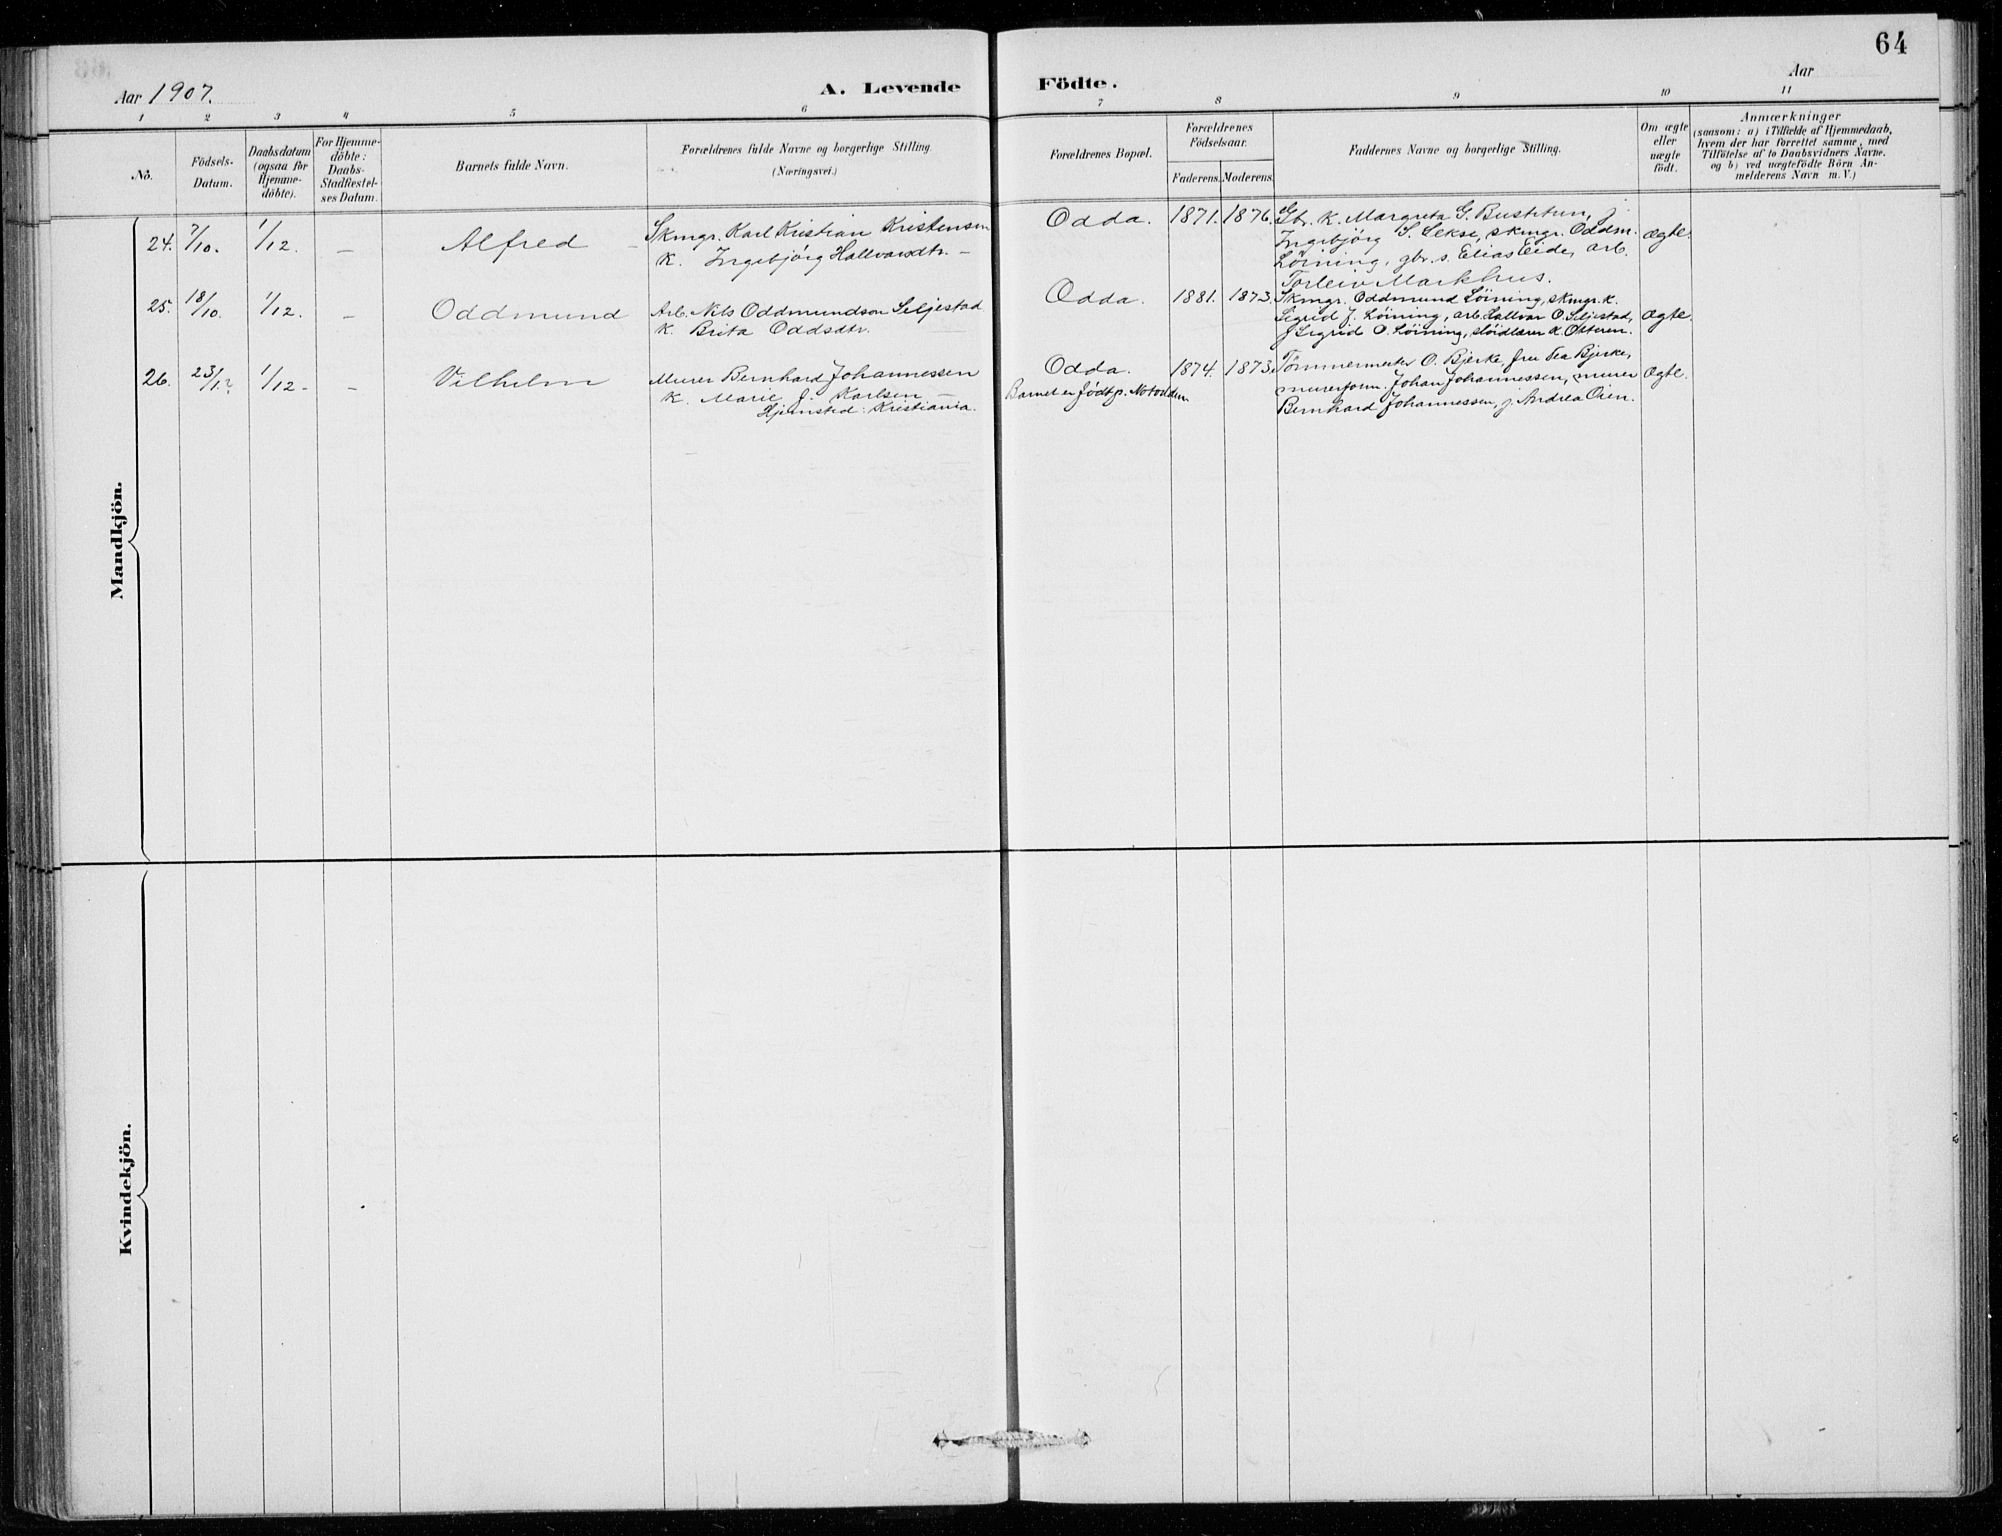 64
Aar 1907.
A. Levende Födte.
Aar
1 2 3 4 5 6 7 8 9 10 11
No.
Födsels-
Datum.
Daabsdatum
(ogsaa for
Hjemme-
döbte).
For Hjemme-
döbte:
Daabs-
Stadfæstel-
ses Datum.
Barnets fulde Navn.
Forældrenes fulde Navne og borgerlige Stilling.
(Næringsvei.)
Forældrenes Bopæl.
Forældrenes
Födselsaar.
Faderens. Moderens.
Faddernes Navne og borgerlige Stilling.
Om ægte
eller
uægte
födt.
Anmærkninger
(saasom: a) i Tilfælde af Hjemmedaab,
hvem der har forrettet samme, med
Tilföielse af to Daabsvidners Navne.
og b) ved uægtefödte Börn An-
melderens Navn m. V.)
Mandkjön.
24. 7/10. 1/12. – Alfred –
Skmgr. Karl Kristian Kristensen
K. Ingebjörg Hallvardsdtr. –
Odda. 1871. 1876.
Gbr. K. Margreta G. Bustetun, j
Ingebjörg S. Sekse, skmgr. Oddm.
Löining, gbr. s. Elias Eide, arb.
Torleiv Markhus.
ægte.
25. 18/10. 1/12. – Oddmund
Arb. Nils Oddmundson Seljestad
K. Brita Oddsdtr.
Odda. 1881. 1873.
Skmgr. Oddmund Löining, skmgr. k.
Sigrid J. Löining, arb. Hallvar O. Seljestad,
j Sigrid O. Löining, slöidlærer K. Otteren.
ægte.
26. 23/12 1/12 – – Vilhelm
Murer Bernhard Johannessen
K. Marie J. Karlsen –
Hjemsted: Kristiania.
Odda. 1874. 1873.
Barnet er födt p. Notodden
Tömmermester O. Bjerke, fru Tea Bjerke,
murerform. Johan Johannessen, murer
Bernhard Johannessen, j. Andrea Oien.
ægte.
Kvindekjön.